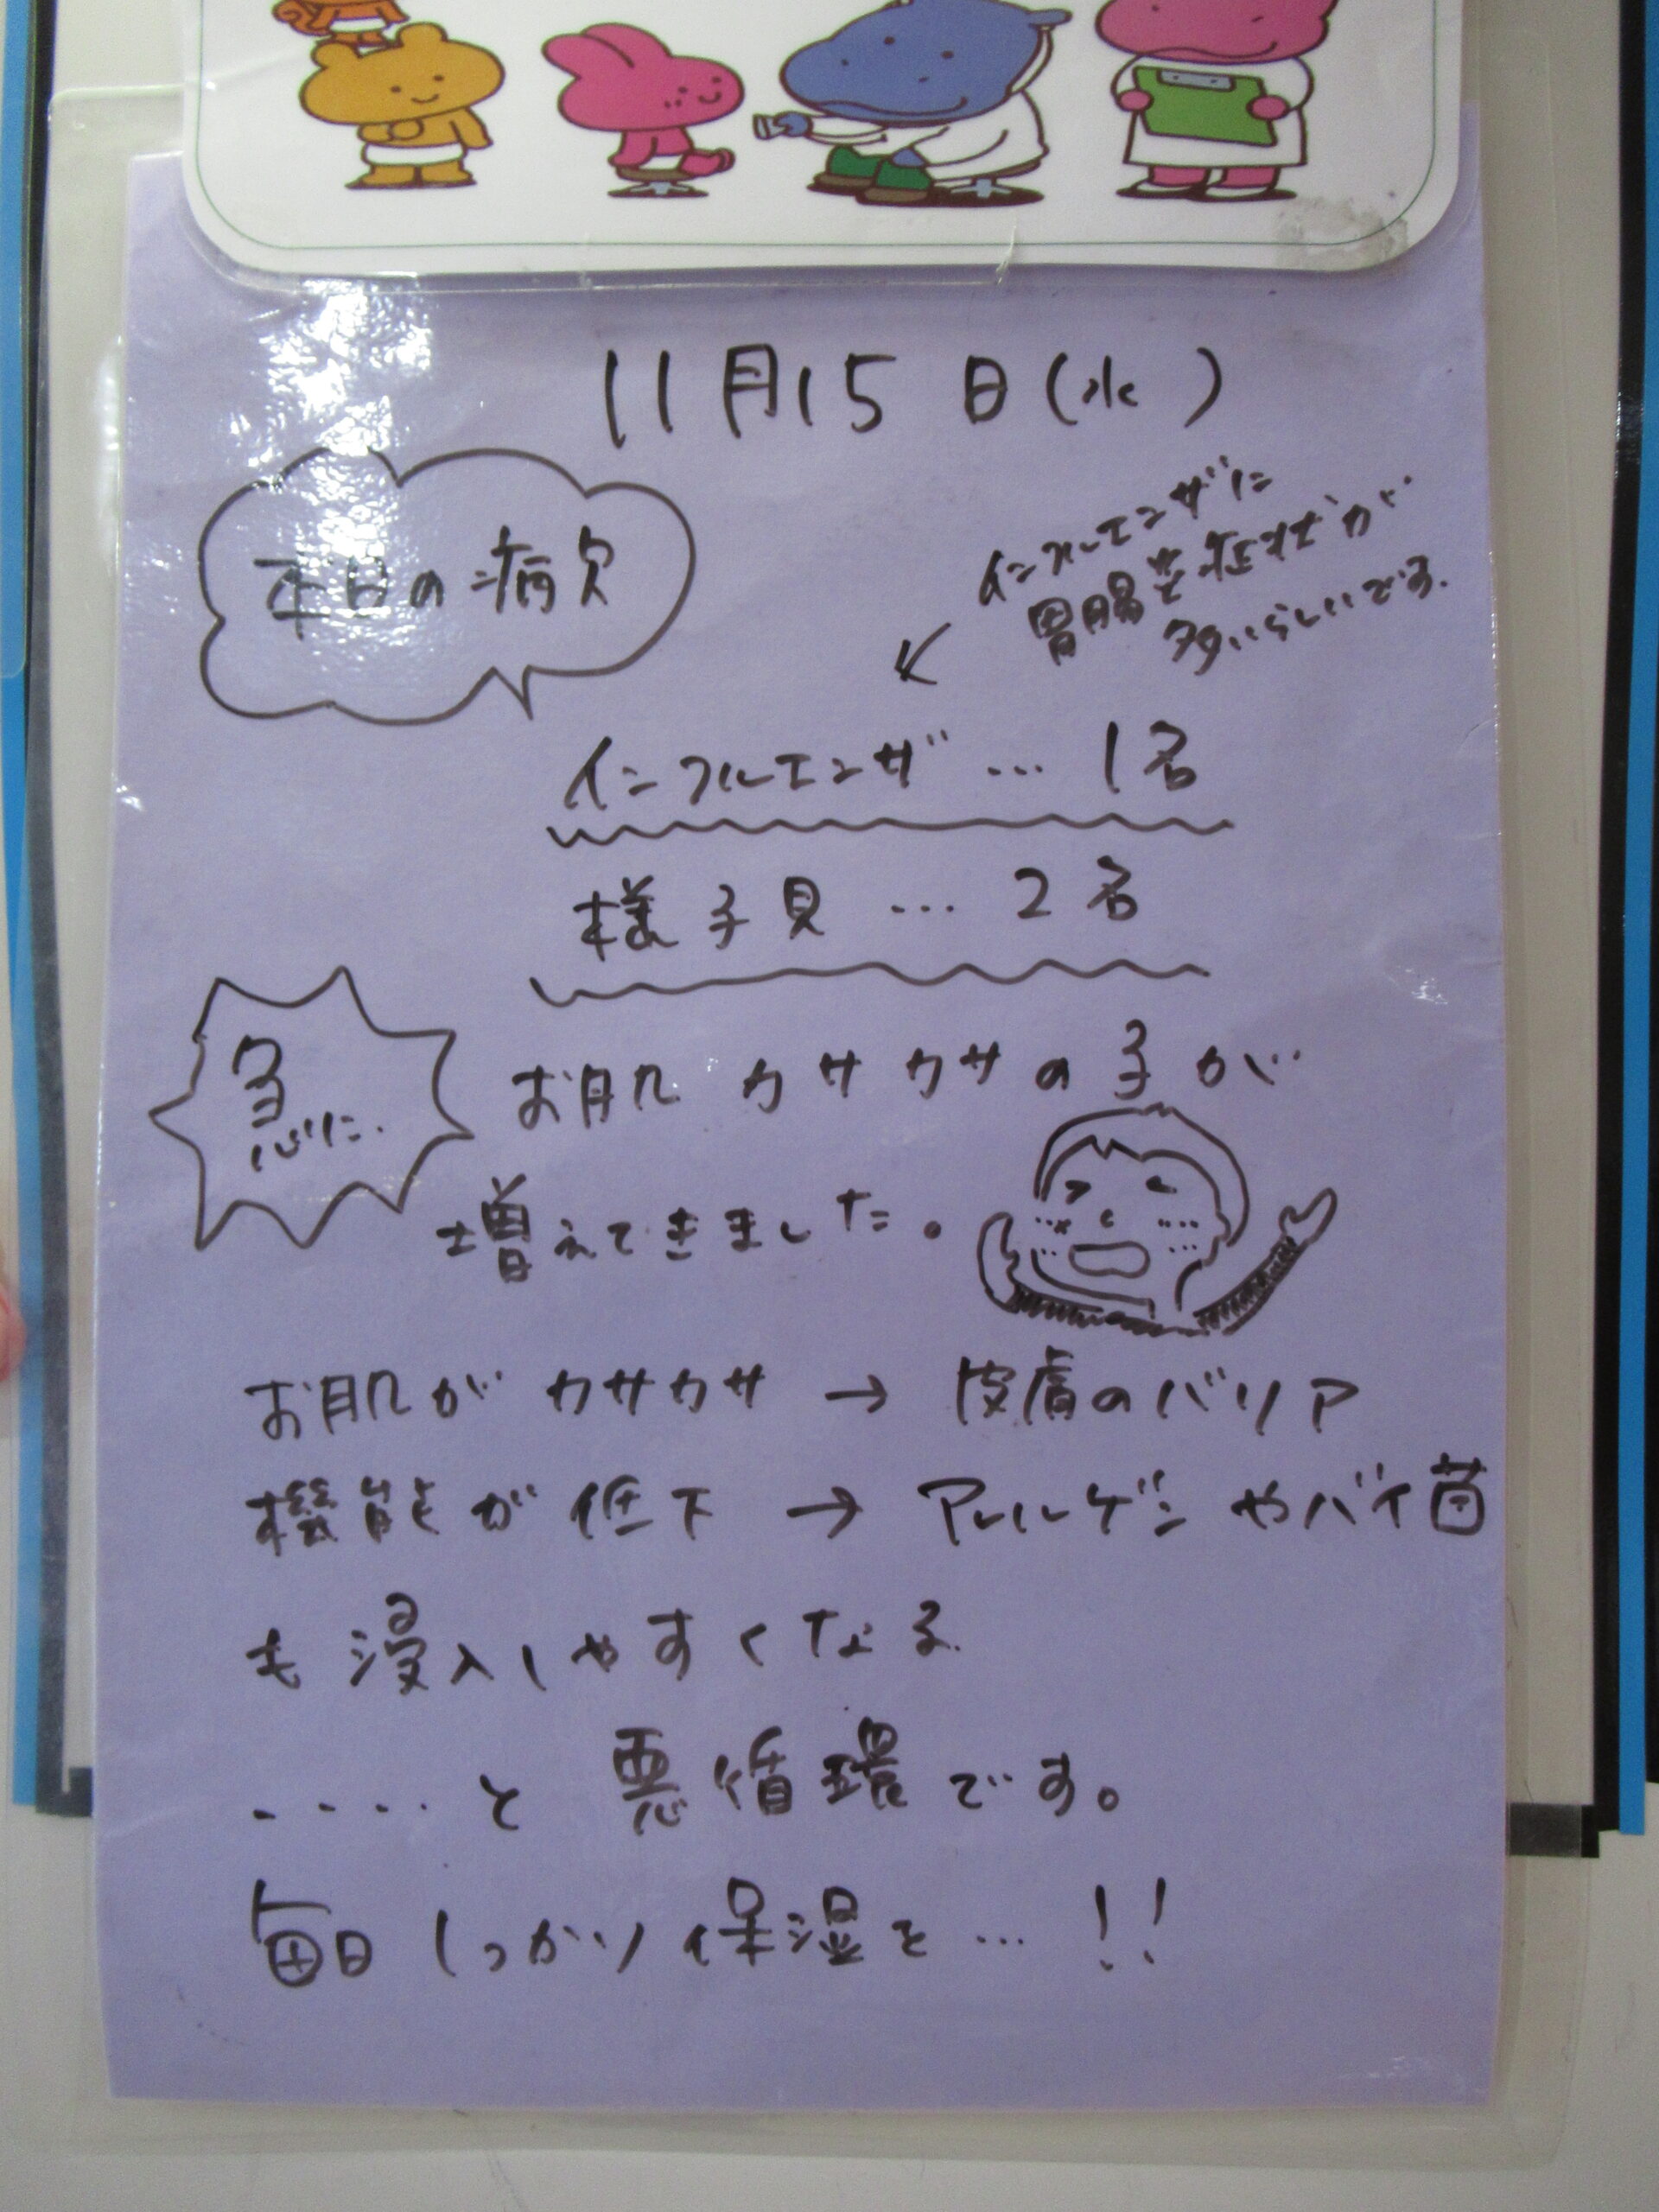 11月15日(水)
本日の病欠
インフルエンザに
胃腸炎症状が
多いらしいです.
インフルエンザ … 1名
様子見 … 2名
急に.
お肌カサカサの子が
増えてきました。
お肌がカサカサ → 皮膚のバリア
機能が低下 → アレルゲンやバイ菌
も浸入しやすくなる
....と悪循環です。
毎日しっかり保湿を…!!